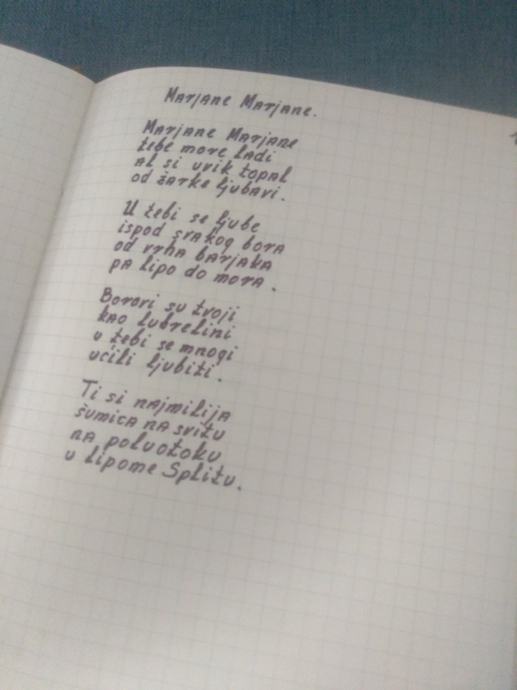 Marjane Marjane.
Marjane Marjane
tebe more ladi
al si uvik topal
od žarke ljubavi.
U tebi se ljube
ispod svakog bora
od vrha barjaka
pa lipo do mora.
Borovi su tvoji
kao lubrelini
u tebi se mnogi
učili ljubiti.
Ti si najmilija
šumica na svitu
na poluotoku
u lipome Splitu.